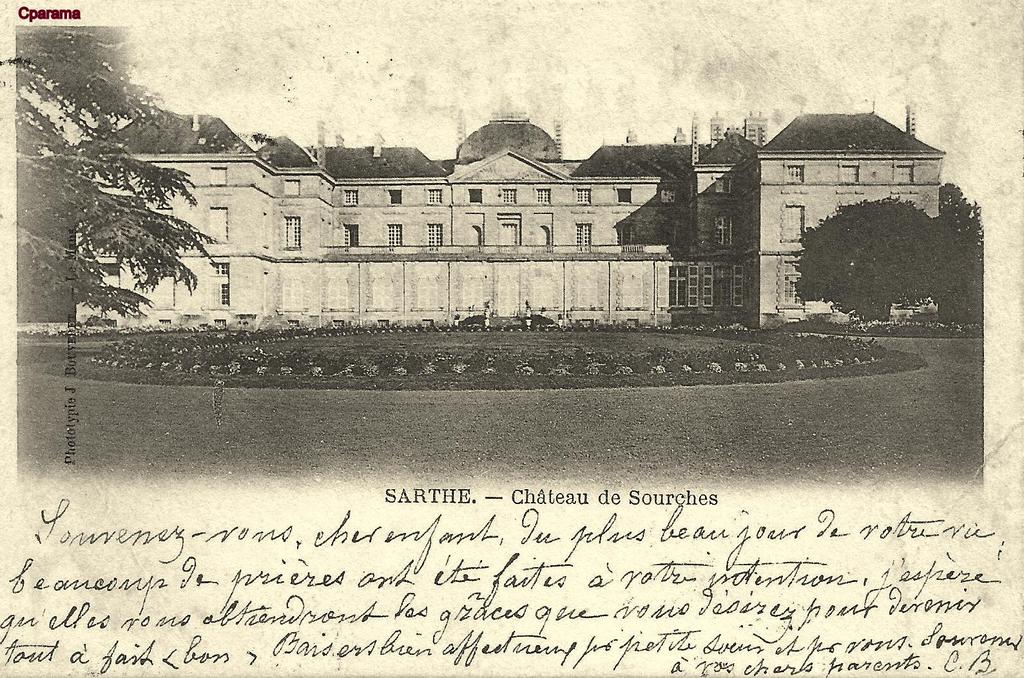 Cparama
Phototypie J Bouveret — Le Mans
SARTHE. — Château de Sourches
Souvenez-vous, cher enfant, du plus beau jour de votre vie;
beaucoup de prières ont été faites à votre intention, j'espère
qu'elles vous obtiendront les grâces que vous désirez pour devenir
tout à fait < bon > Baisers bien affectueux pr petite soeur et pr vous. Souvenirs
à vos chers parents. C. B.